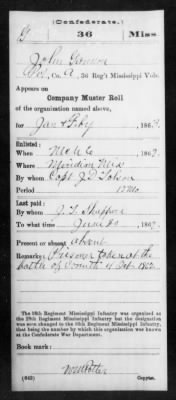 (Confederate.)
G 36 Miss
John
Pvt., Co. A, 36 Reg't Mississippi Vols.
Appears on
Company Muster Roll
of the organization named above,
for Jan & Feby, 1863.
Enlisted:
When Mch 6, 186
Where Meridian Miss
By whom Capt J. D.
Period 12 Mo.
Last paid:
By whom J. T.
To what time June 30, 186
Present or absent Absent
Remarks: Prisoner taken at the
battle of Corinth 4 Oct 1862
The 36th Regiment Mississippi Infantry was organized as
the 28th Regiment Mississippi Infantry but the designation
was soon changed to the 36th Regiment Mississippi Infantry,
that being the number by which it was known at the
Confederate War Department.
Book mark:
(642) Copyist.